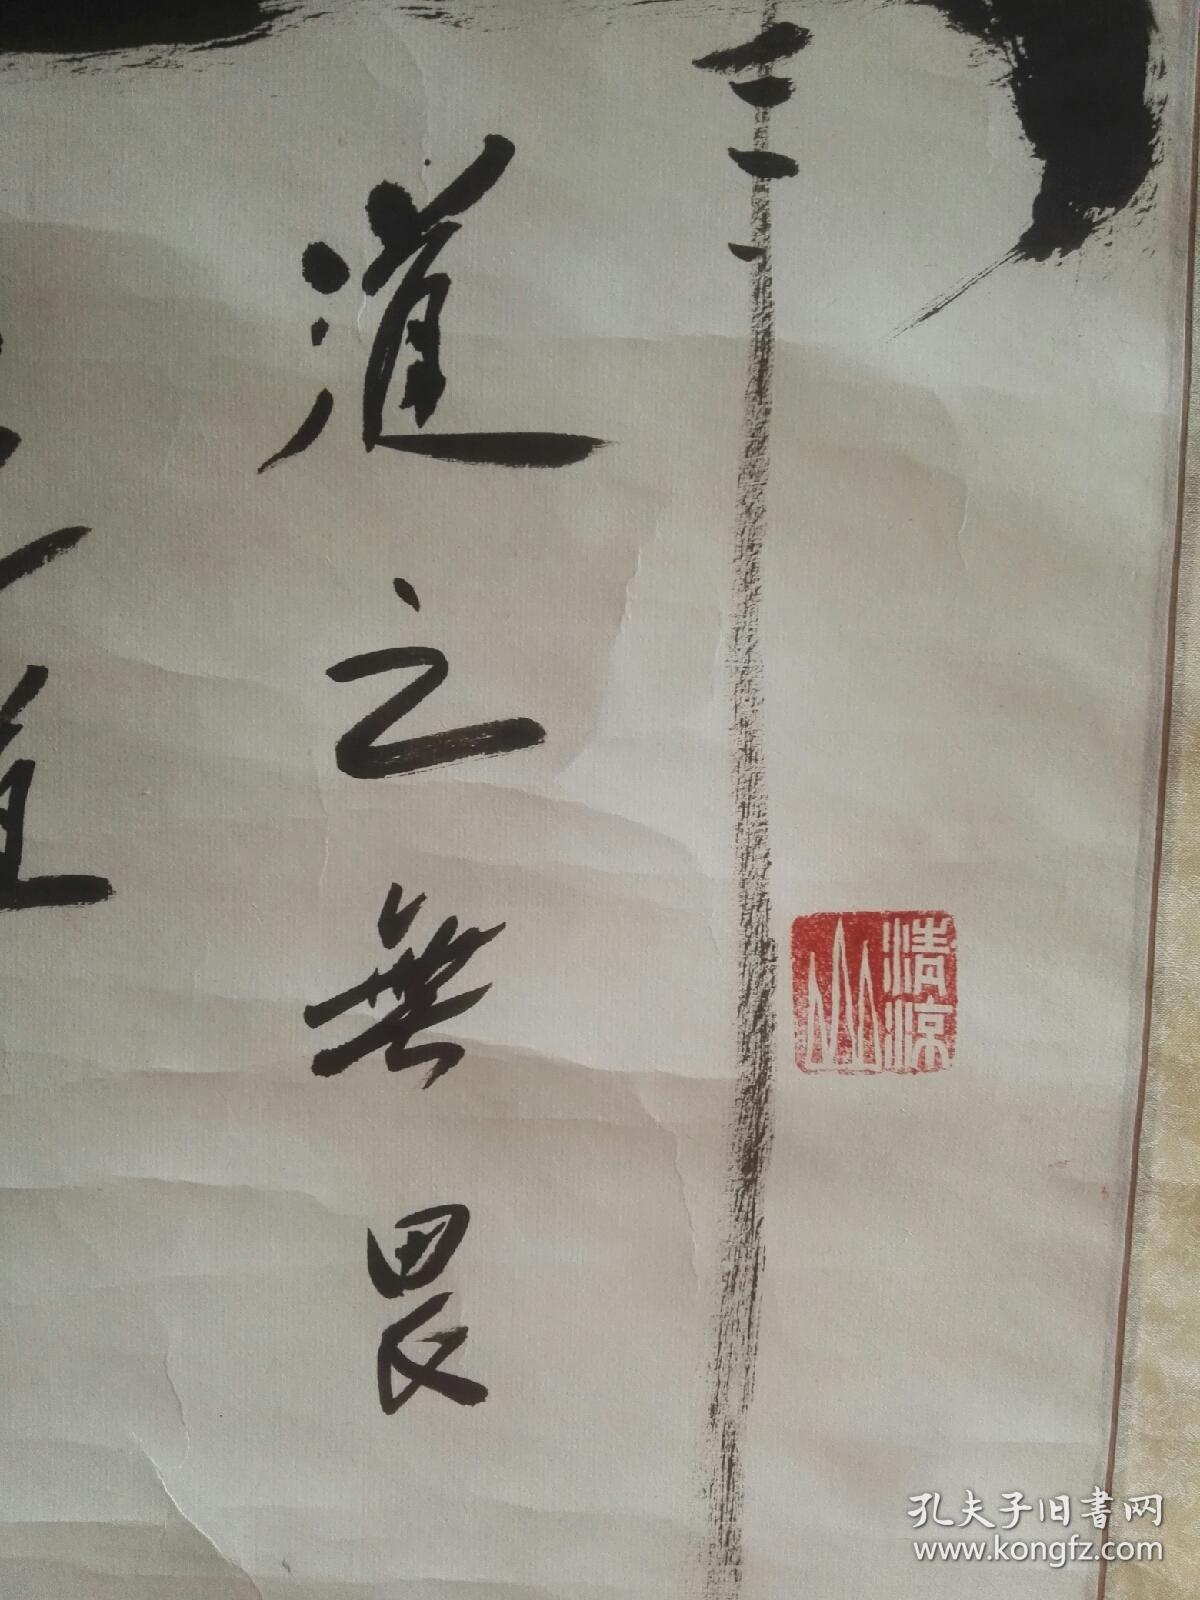 道之無畏
清涼山
孔夫子旧書网
www.kongfz.com